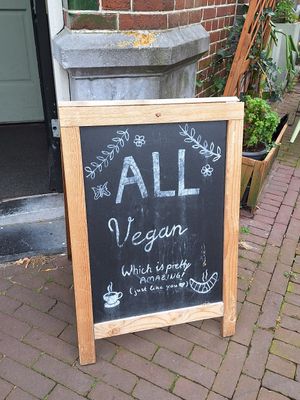 ALL
Vegan
Which is pretty
AMAZING!
(just like you ♥)